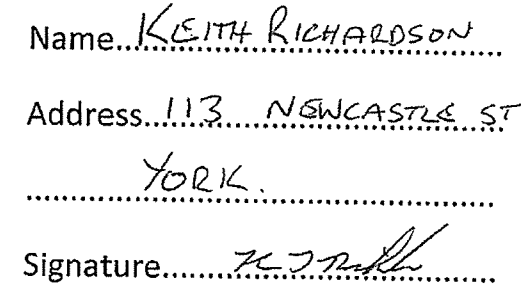 Name...KEITH RICHARDSON
Address...113 NEWCASTLE ST
YORK.
Signature......